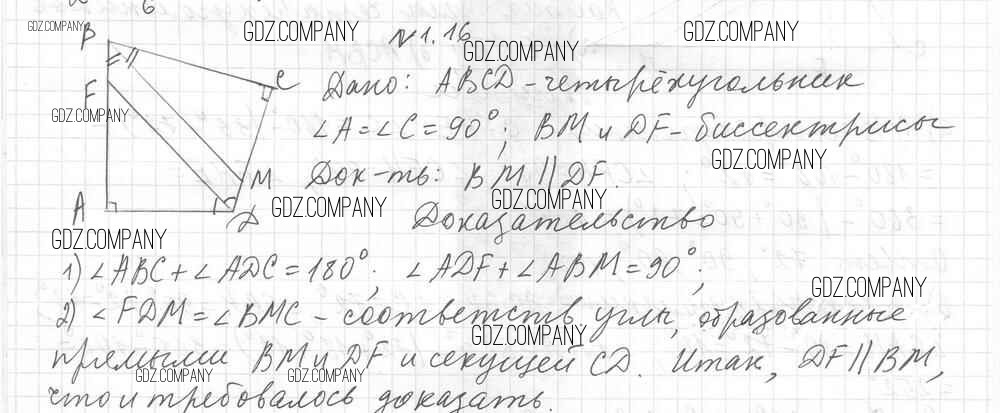 GDZ.COMPANY
GDZ.COMPANY
GDZ.COMPANY
№1.16
GDZ.COMPANY
B
C
F
M
A
D
Дано: ABCD - четырёхугольник
GDZ.COMPANY
∠A = ∠C = 90°; BM и DF - биссектрисы
GDZ.COMPANY
Док-ть: BM || DF.
GDZ.COMPANY
GDZ.COMPANY
Доказательство
GDZ.COMPANY
1) ∠ABC + ∠ADC = 180°; ∠ADF + ∠ABM = 90°;
GDZ.COMPANY
2) ∠FDM = ∠BMC - соответств углы, образованные
GDZ.COMPANY
прямыми BM и DF и секущей CD. Итак, DF || BM,
GDZ.COMPANY
GDZ.COMPANY
что и требовалось доказать.